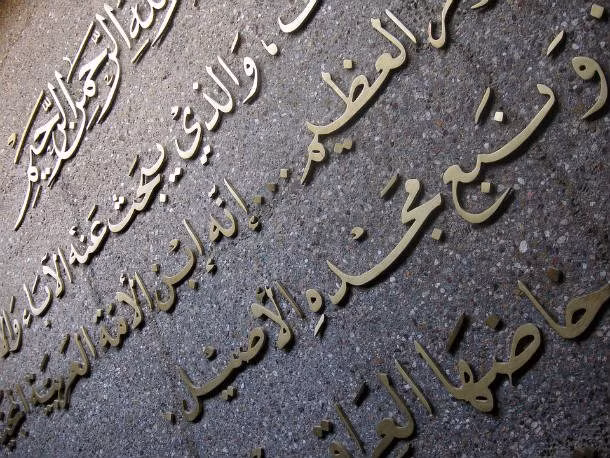 الله الرحمن الرحيم
، وَالذيْ يبحَث عَنْه الآباء
العظيم ... إنه ابْن الأمّة العَربيَة
وَنبع مَجْدِه الأصيْل.
العراق